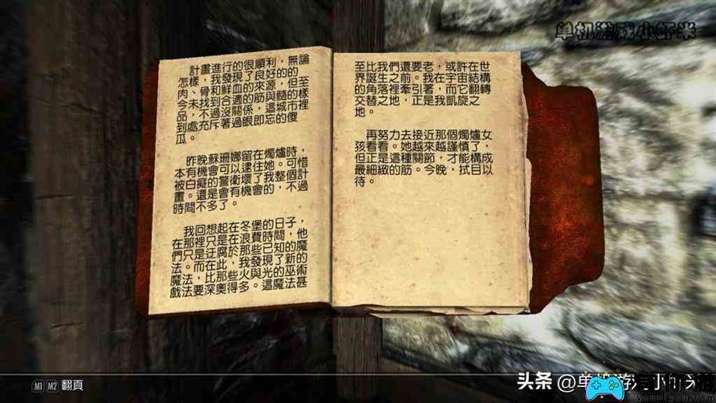 单机游戏小虾米
計畫進行的很順利，無論
怎樣，我發現了良好的的
肉、骨和鮮血的來源，但至
今未找到合適的筋與髓的樣
品，不過沒關係，這城市裡
到處充斥著過眼即忘的傻
瓜。
昨晚蘇珊娜留在燭爐時，
本有機會可以逮住她。可惜
被白癡的警衛壞了我整個計
畫。還是會有機會的，不過
時間不多了。
我回想起在冬堡的日子，
在那裡只是在浪費時間，他
們只是迂腐於那些已知的魔
法。而在此，我發現了新的
魔法，比那些火與光的巫術
戲法要深奧得多。這魔法甚
至比我們還要老，或許在世
界誕生之前。我在宇宙結構
的角落裡牽引著，而它翻轉
交替之地，正是我凱旋之
地。
再努力去接近那個燭爐女
孩看看。她越來越謹慎了，
但正是這種關節，才能構成
最細緻的筋。今晚，拭目以
待。
M1 M2 翻頁
头条 @单机游